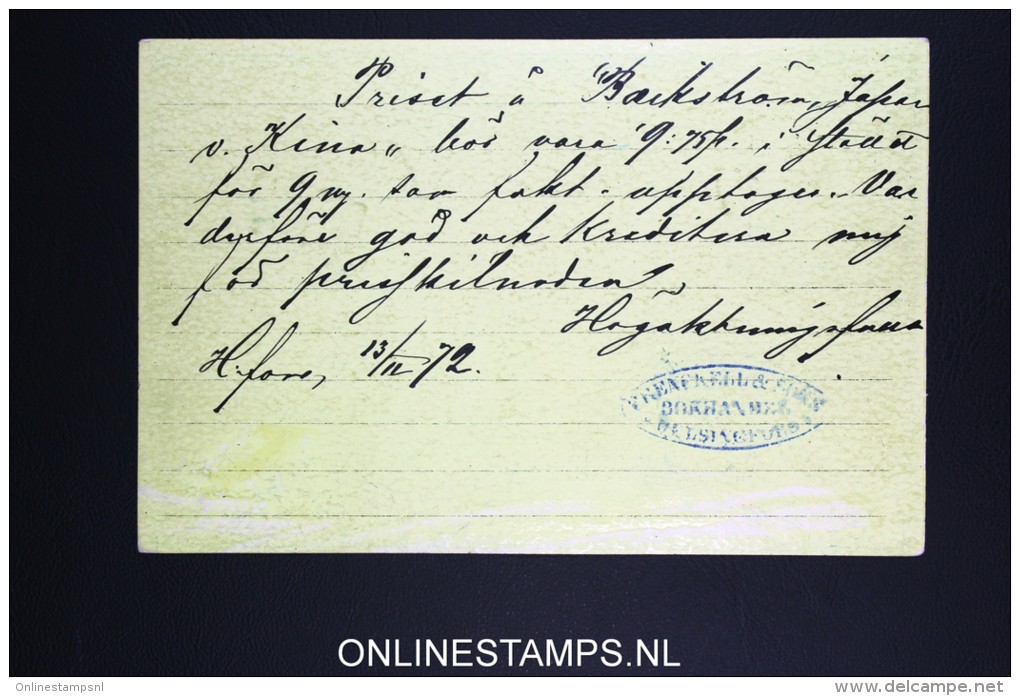 Priset å "Bäckström, Japan
o. Kina" bör vara 9:75p. i stället
för 9 m. som fakt. upptager. Var
derföre god och kreditera mig
för prisskilnaden.
Högaktningsfullt
H:fors, 13/II 72.
FRENCKELL & SON
BOKHANDEL
HELSINGFORS
ONLINESTAMPS.NL
Onlinestampsnl
www.delcampe.net